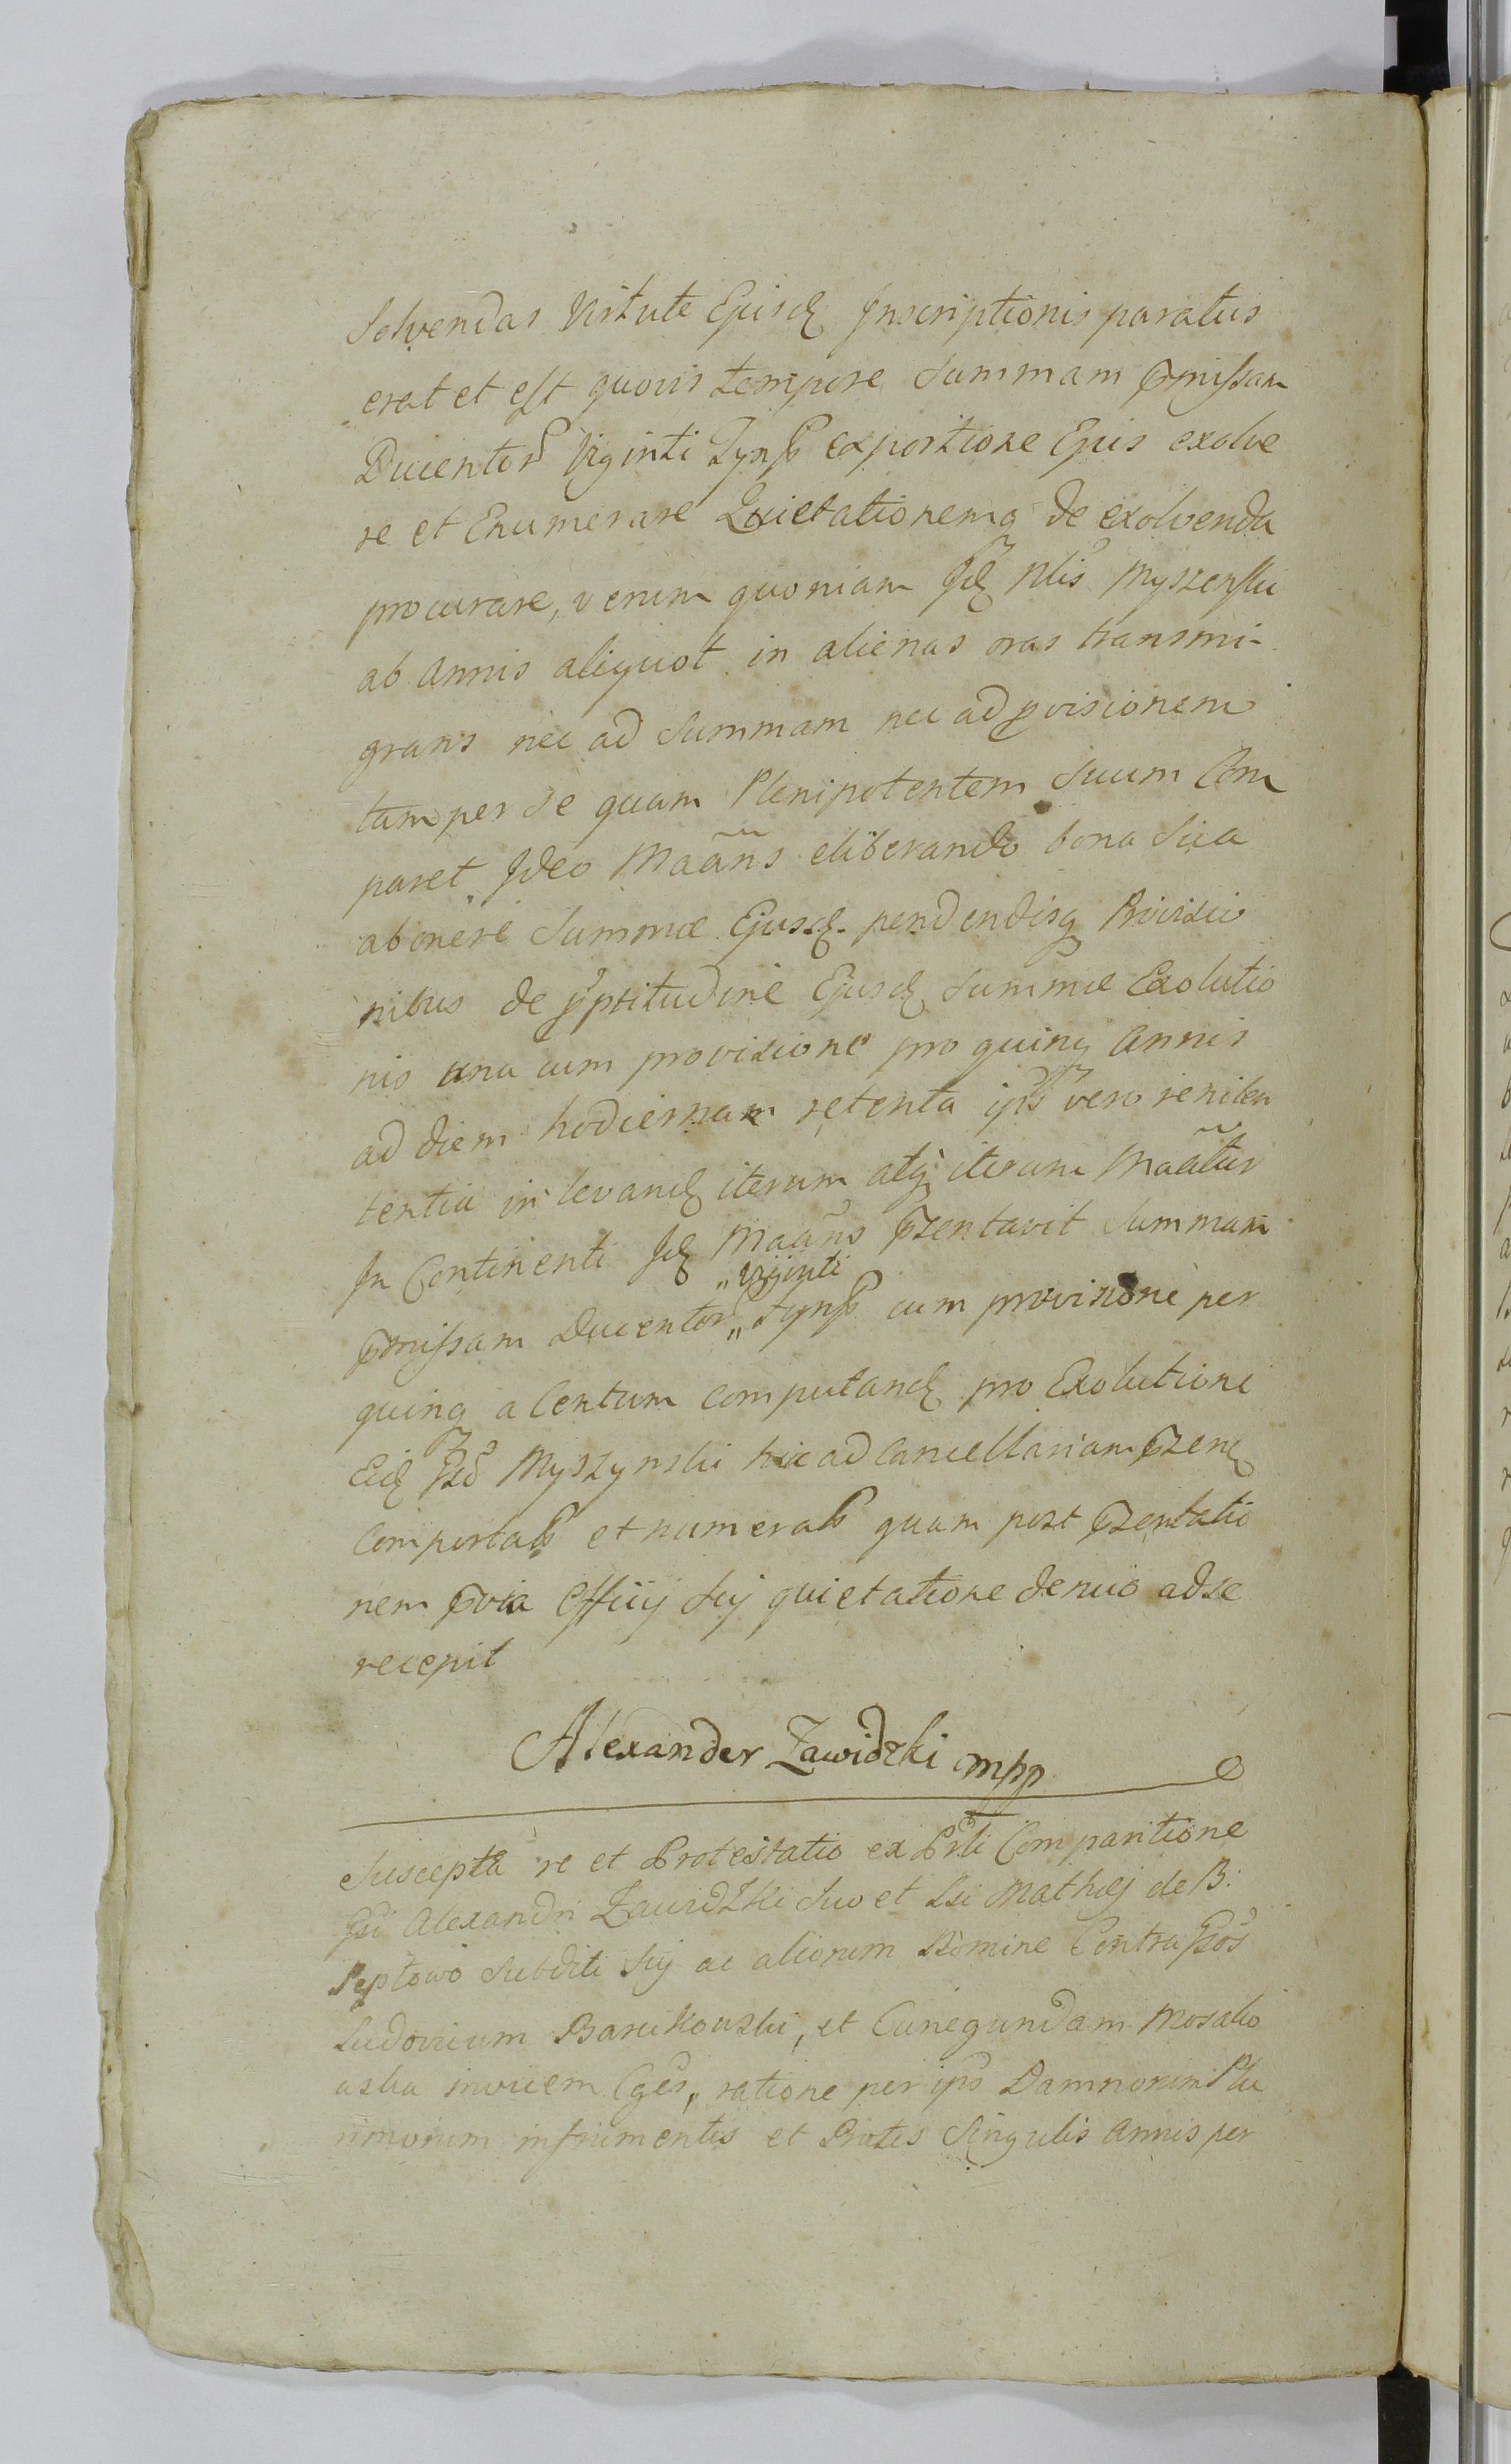 Solvendas Virtute Ejusd Inscriptionis paratus
erat et est quovis tempore Summam pmissam
Ducentor Viginti Tynf exportione Ejus exolve
re et Enumerare Quietationemq de exolvenda
procurare, verum quoniam Id Nlis Myszenski
ab Annis aliquot in alienas oras transmi-
grans nec ad Summam nec ad pvisionem
tam per se quam Plenipotentem Suum Com
paret Ideo Maãns eliberando bona Sua
ab onere Summæ Ejusd pendendisq Provisio
nibus de pptitudine Ejusd Summæ Exolutio
nis una cum provisione pro quinq Annis
ad diem hodiernam retenta ips vero reniten
tentia in levand iterum atq iterum Maãtur
In Continenti Id Maãns pzentavit Summam
„Viginti
pmissam Ducentor „ Tynf cum provisione per
quinq a Centum computand pro Exolutione
Eid Myszynski hic ad Cancellariam pzen
Comportat et numerat quam post pzentatio
nem pvia Officij Sui quietatione denuo ad se
recepit
Alexander Zawidzki mpp
Suscepta re et Protestatio ex Prti Comparitione
Gsi Alexandri Zawidzki Suo et Lsi Mathej de B:
Peptowo Subditi Sui ac aliorum Nomine Contra Gsos
Ludovicum Barcikowski, et Cunegundam Mosako
wska invicem Cges, ratione per ips Damnorum Plu
rimorum in frumentis et Pratis Singulis Annis per